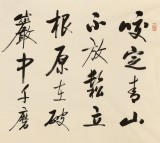 咬定青山
不放鬆立
根原在破
巖中千磨